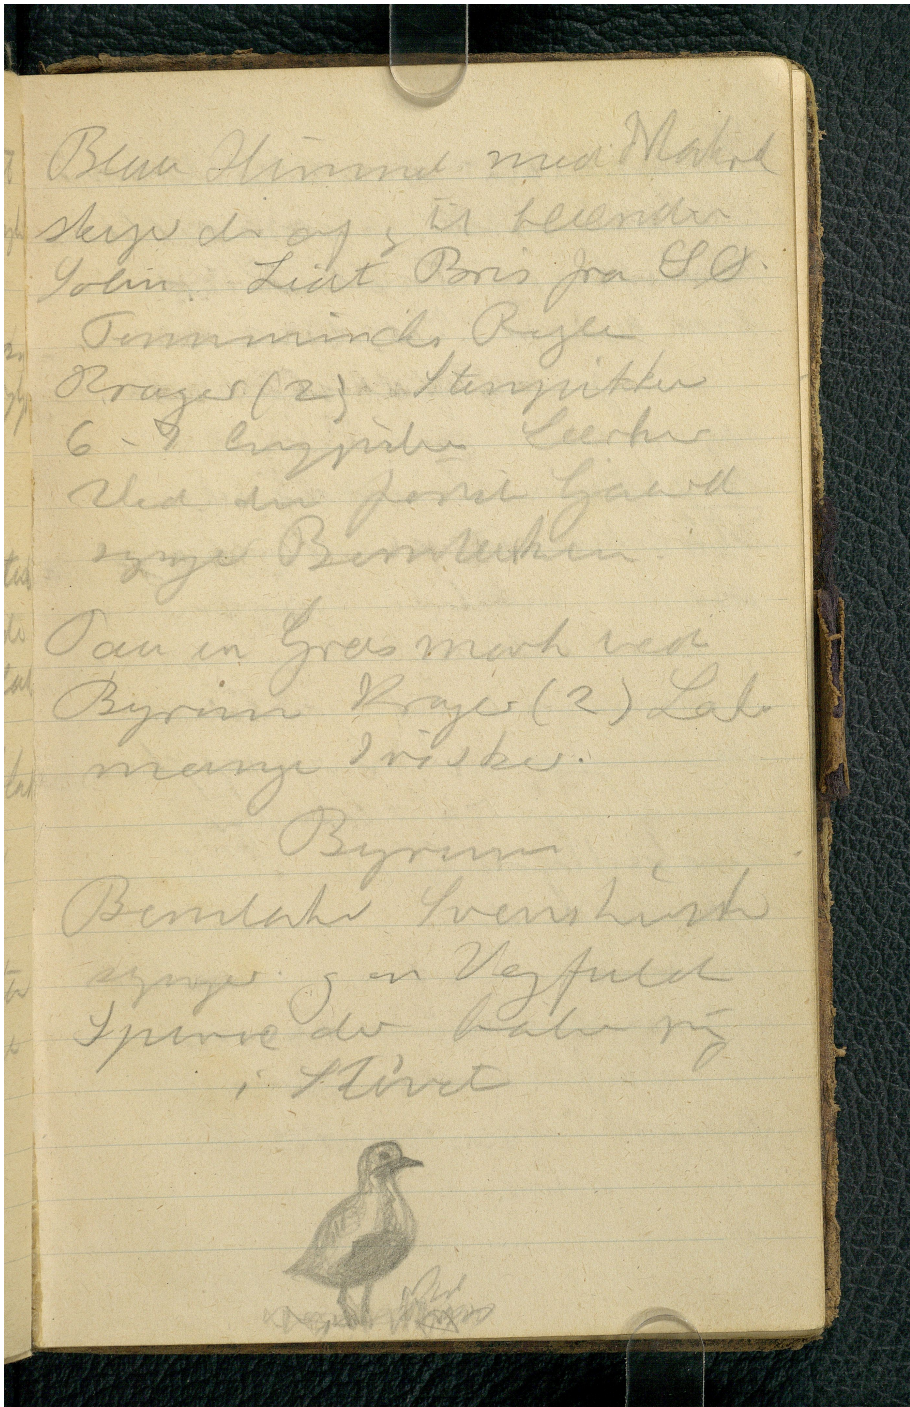 Blaa Himmel med Makrel
skyer der af og til blænder
Solen. Lidt Bris fra S.Ø.
Temmincks Ryle
Krager (2) Stenpikker
6-7 Engpiber Lærker
Ved den første Gaard
synger Bomlærken.
Paa en Græsmark ved
Byrum Krager (2)
mange Irisker.
Byrum
Bomlærke Svenskirisk
synger og en Vejfuld
Spurve der bader sig
i Støvet